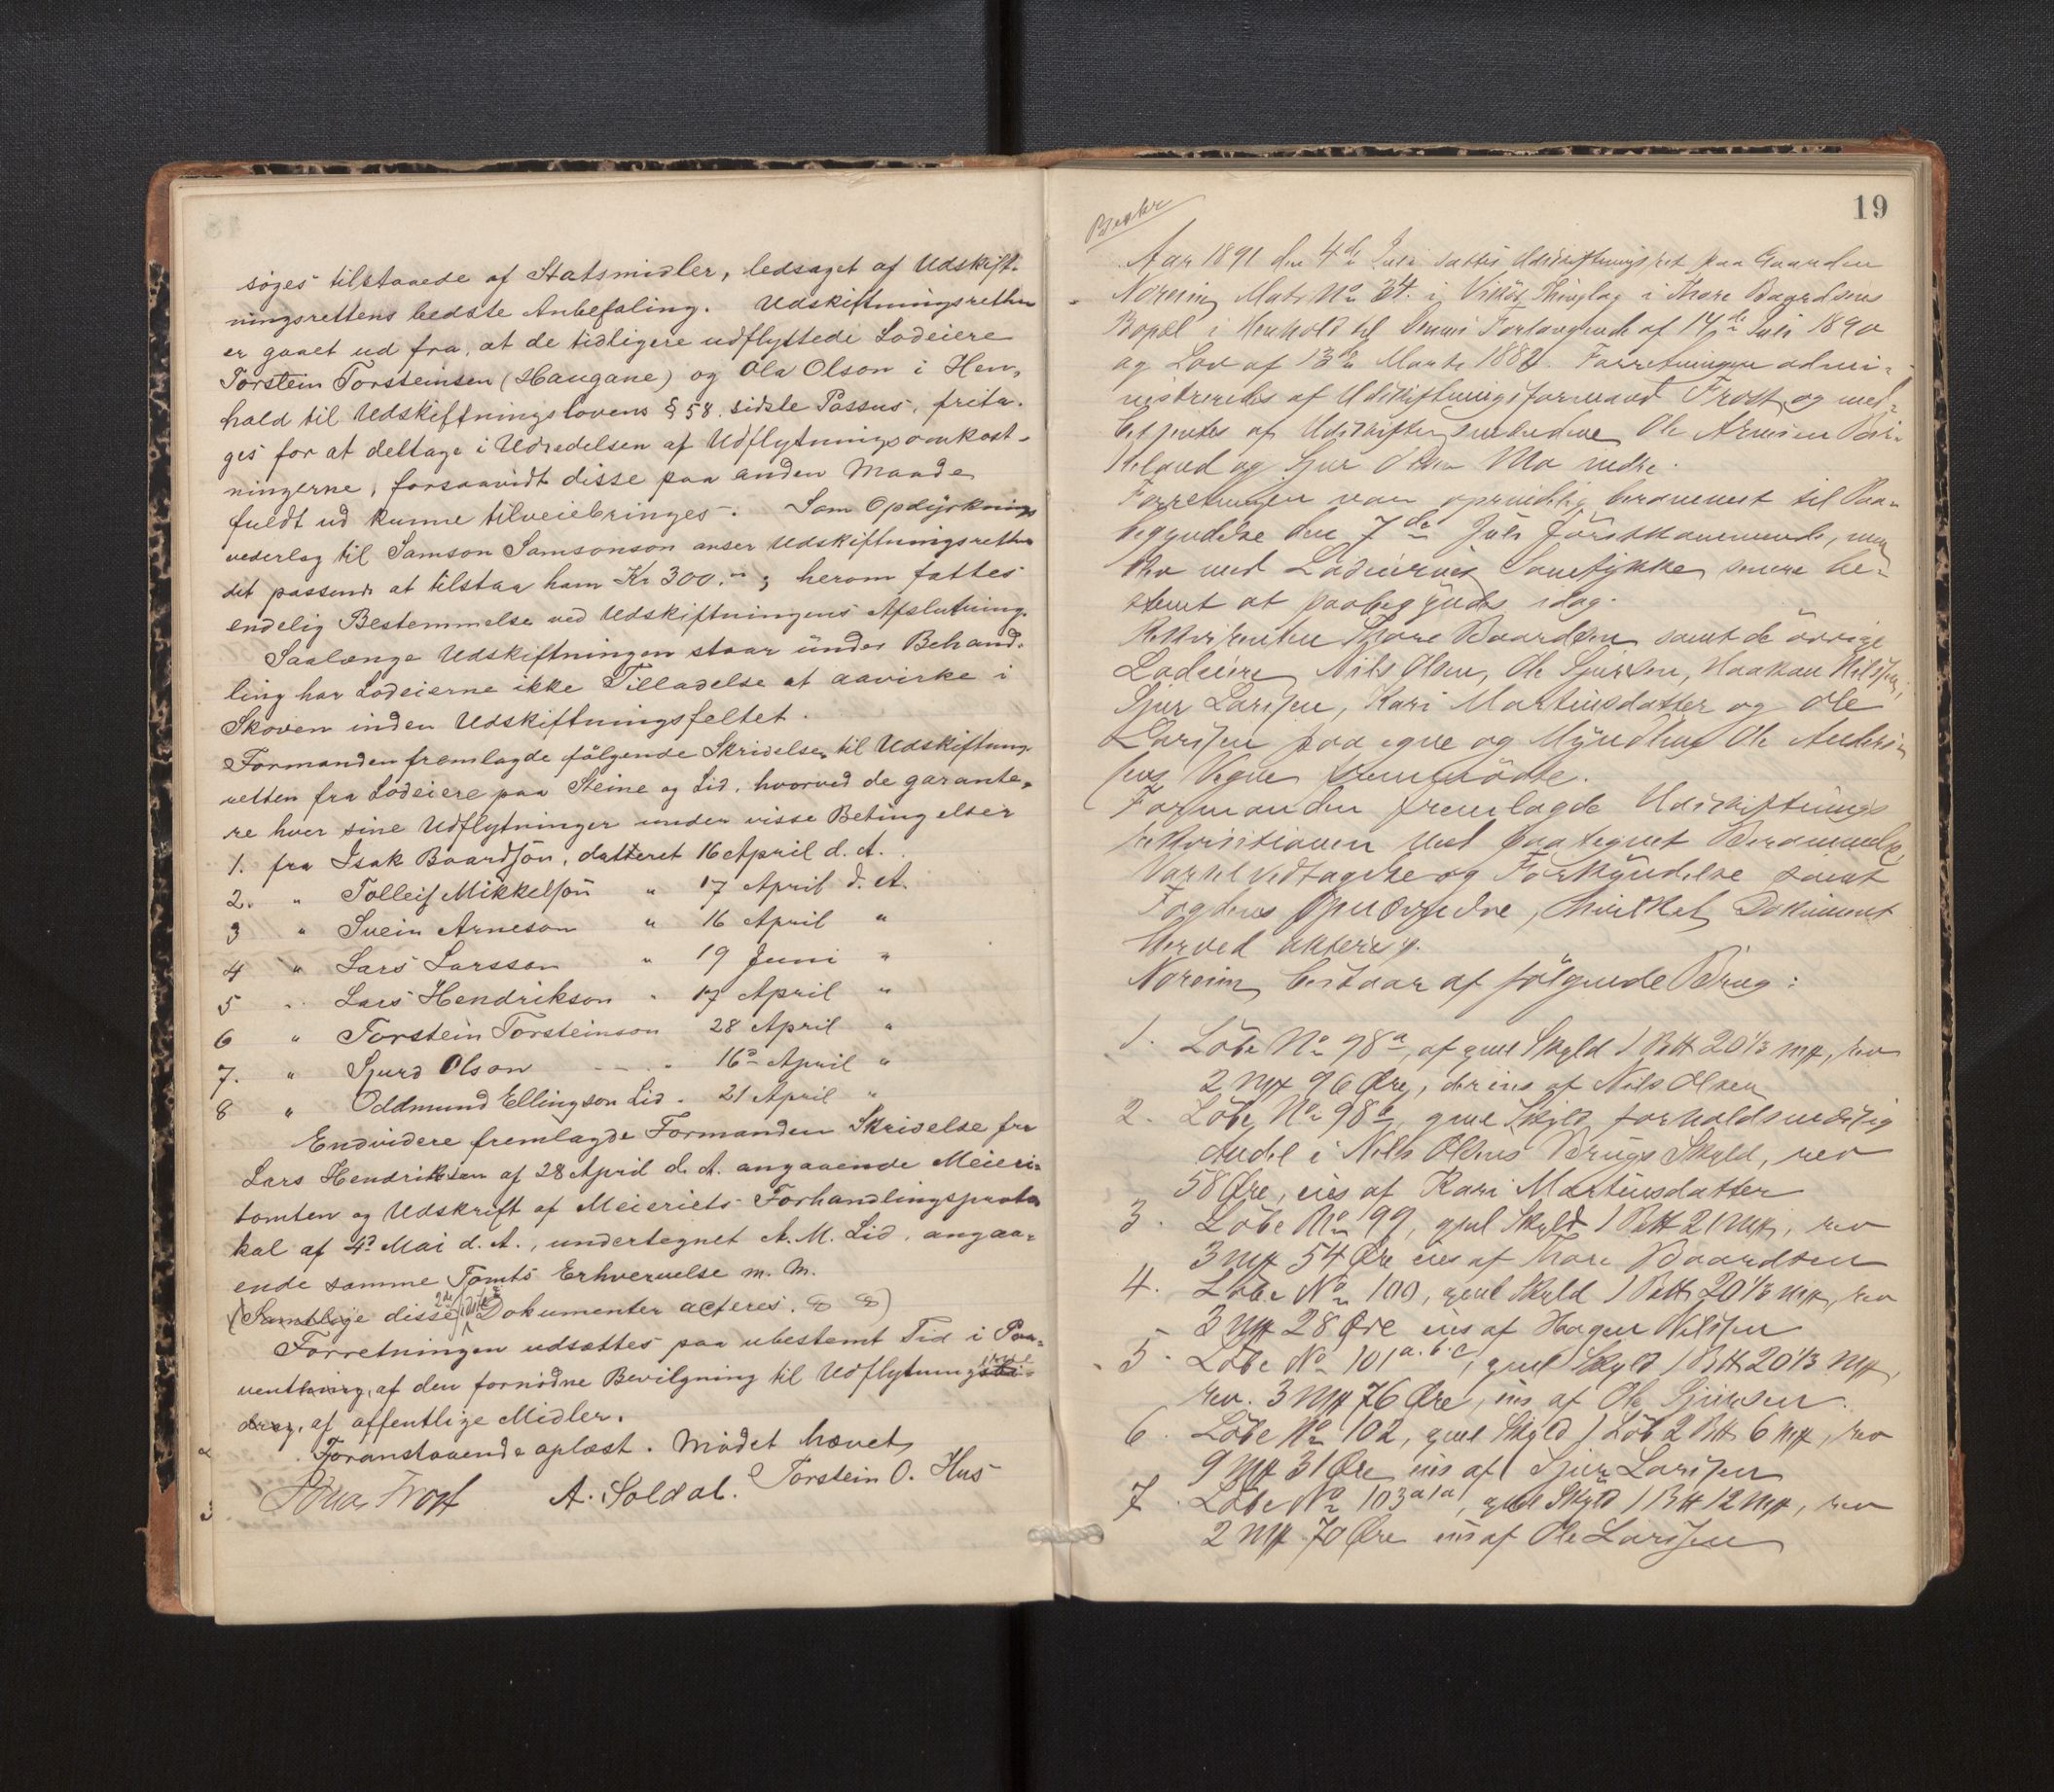 søges tilstaaede af Statsmidler, ledsaget af Udskift-
ningsrettens bedste Anbefaling. Udskiftningsretten
er gaaet ud fra, at de tidligere udflyttede Lodeiere
Torstein Torsteinsen (Haugane) og Ola Olson i Hen-
hold til Udskiftningslovens § 58, sidste Passus, frita-
ges for at deltage i Udredelsen af Udflytningsomkost-
ningerne, forsaavidt disse paa anden Maade
fuldt ud kunne tilveiebringes. Som Opdyrknings
vederlag til Samson Samsonson anser Udskiftningsretten
det passende at tilstaa ham Kr 300.-; herom fattes
endelig Bestemmelse ved Udskiftningens Afslutning.
Saalænge Udskiftningen staar under Behand-
ling har Lodeierne ikke Tilladelse at aavirke i
Skoven inden Udskiftningsfeltet.
Formanden fremlagde følgende Skrivelser til Udskiftnings-
retten fra Lodeiere paa Steine og Lid, hvorved de garante-
re hver sine Udflytninger under visse Betingelser
1. fra Isak Baardson, datteret 16 April d. A.
2. " Tolleif Mikkelson " 17 April d. A.
3 " Svein Arneson " 16 April "
4 " Lars Larsson " 19 Juni "
5 " Lars Hendrikson " 17 April "
6 " Torstein Torsteinson 28 April "
7. " Sjurd Olson " 16d April "
8 " Oddmund Ellingson Lid - 21 April "
Endvidere fremlagde Formanden Skrivelse fra
Lars Hendrikson af 28 April d. A. angaaende Meieri-
tomten og Udskrift af Meieriets Forhandlingsproto
kol af 4d Mai d. A., undertegnet A. M. Lid, angaa-
ende samme Tomts Erhvervelse m. M.
(Samtlige disse 2de sidste Dokumenter acteres.)
Forretningen udsættes paa ubestemt Tid i Paa-
venthning af den fornødne Bevilgning til Udflytnings
drag af offentlige Midler.
Foranstaaende oplæst. Mødet hævet
Jonas Frost A. Soldal. Torstein O. Hus
19
Aar 1891 den 4de Juli sattes Udskiftningsret paa Gaarden
Noreim Mats No 34. i Vikør Thinglag i Thore Baardsens
Bopæl i Henhold til Dennes Forlangende af 14de Juli 1890
og Lov af 13de Marts 1882. Forretningen admi-
nistreredes af Udskiftningsformand Frost og med-
betjentes af Udskiftningsmændene Ole Arnesen
og Sjur Olsen Mo nedre.
Forretningen var oprindelig berammet til Paa-
begyndelse den 7de Juli førstkommende, men
blev med Lodeiernes Samtykke senere be-
stemt at paabegyndes idag.
Rekvirenten Thore Baardsen samt de øvrige
Lodeiere Nils Olsen, Ole Sjursen, Haakon Nilssen,
Sjur Larssen, Kari Martinsdatter og Ole
Larssen paa egne og Myndling Ole Anders
sens Vegne fremmødte.
Formanden fremlagde Udskiftnings
rekvisitionen med paategnet Berammelse,
Varselvedtagelse og Forkyndelse samt
Fogdens Opnævnelse, hvilket Dokument
herved akteres.
Noreim bestaar af følgende Brug:
1. Løbe No 98a, af gml Skyld 1 Btt 20 1/3 mrk, rev
2 mrk 96 Øre, der eies af Nils Olsen
2. Løbe No 98b, gml Skyld forholdsmæssig
Andel i Nils Olsens Brugs Skyld, rev
58 Øre, eies af Kari Martinsdatter
3. Løbe No 99, gml Skyld 1 Btt 21 mrk, rev
3 mrk 54 Øre eies af Thore Baardsen
4. Løbe No 100, gml Skyld 1 Btt 20 1/3 mrk, rev
3 mrk 28 Øre eies af Hagen Nilssen
5. Løbe No 101 a.b.c, gml Skyld 1 Btt 20 1/3 mrk,
rev. 3 mrk 76 Øre, eies af Ole Sjursen.
6. Løbe No 102, gml Skyld 1 Løb 2 Btt 6 mrk, rev
9 mrk 31 Øre eies af Sjur Larssen
7. Løbe No 103a1a, gml Skyld 1 Btt 12 mrk, rev
2 mrk 70 Øre eies af Ole Larssen